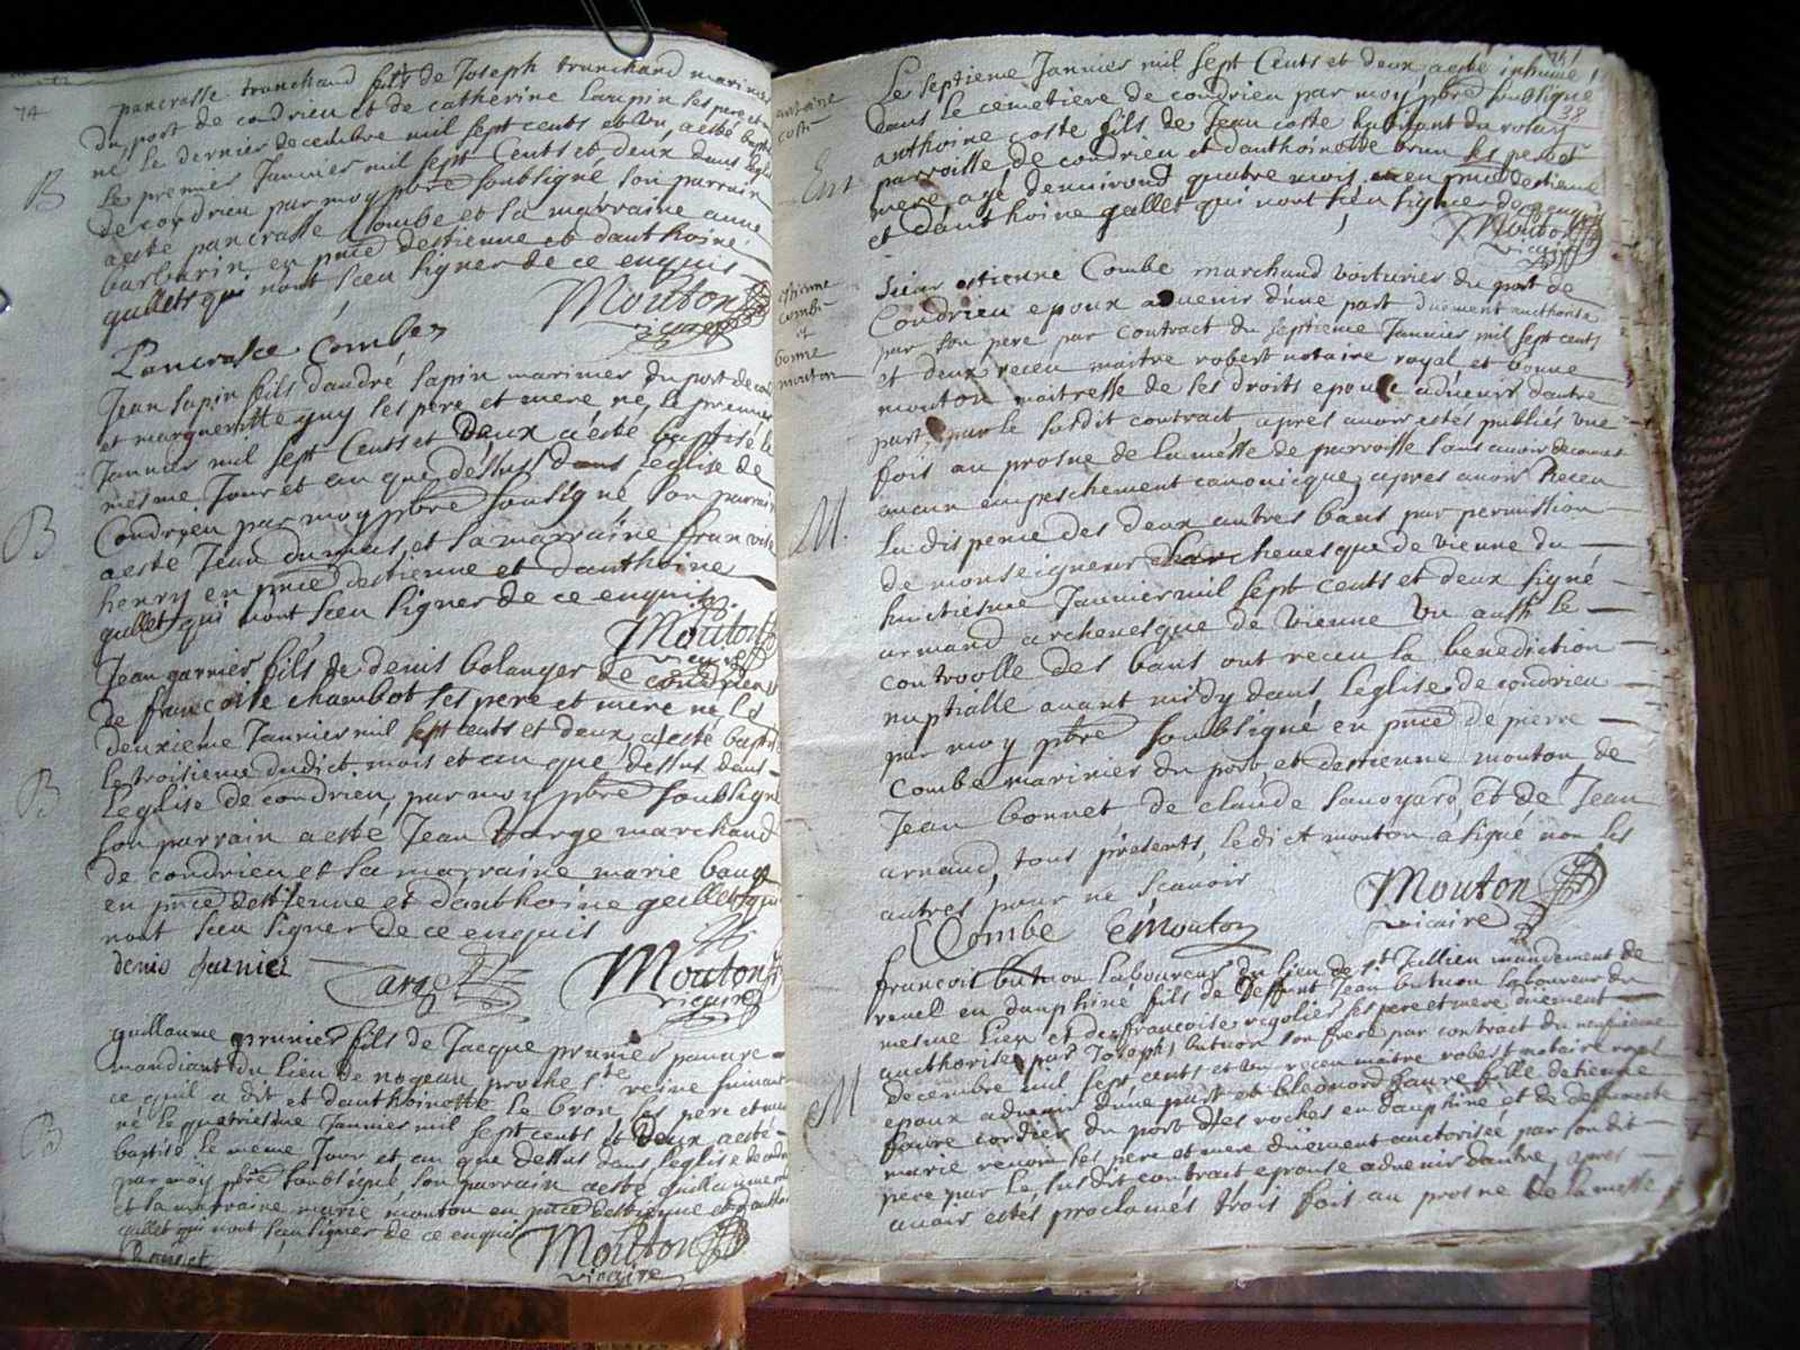 74
pancrasse trunchand fils de Joseph trunchand marinier
du port de condrieu et de catherine Laupin ses pere et
né le dernier decembre mil sept cents et un, a esté bapt
Le premier Jannier mil sept Cents et deux dans leglis
B
de condrieu par moy pbre soubsigné son parrain
a esté pancrasse Combe et la marraine anne
barbarin en pnce destienne et danthoine
gullets qui nont sceu signer de ce enquis
Mouton
vicaire
Pancrasce Combe
Jean sapin fils dandré sapin marinier du port de con
et margueritte guy ses pere et mere né le premier
Jannier mil sept Cents et deux a esté baptisé le
mesme Jour et an que dessus dans leglise de
B
Condrieu par moy pbre soussigné son parrain
a esté Jean dumas et sa marraine francoise
henry en pnce destienne et danthoine
gullet qui nont sceu signer de ce enquis
Mouton
vicaire
Jean garnier fils de denis bolanger de condrieu et
de francoise chambot ses pere et mere né le
deuxieme Jannier mil sept cents et deux a esté bapt
le troisieme dudict mois et an que dessus dans
B
Leglise de condrieu par moy pbre soubsigné
son parrain a esté Jean Varge marchand
de condrieu et sa marraine marie
en pnce destienne et danthoine gullets qui
nont sceu signer de ce enquis
denis garnier
Varge
Mouton
vicaire
guillaume prunier fils de Jacque prunier pauvre
mandiant du lieu de nogeau proche ste reine suivant
ce quil a dit et danthoinette le bron ses pere et mere
né le quatriesme Jannier mil sept cents et deux a esté
B
baptisé le meme Jour et an que dessus dans leglise de condr
par moy pbre soubsigné son parrain a esté guillaume
et la marraine marie mouton en pnce destienne et danthoi
gullet qui nont sceu signer de ce enquis
Mouton
vicaire
38
antoine
coste
Le septieme Jannier mil sept Cents et deux a esté inhumé
dans le cemetiere de condrieu par moy pbre soubsigné
anthoine coste fils de Jean coste habitant du rosay
Ent
parroisse de condrieu et danthoinette brun ses pere et
mere, agé denvirond quatre mois en pnce destienne
et danthoine gallet qui nont sceu signer de ce enquis
Mouton
vicaire
estienne
combe
et
bonne
mouton
Sieur estienne Combe marchand voiturier du port de
Condrieu epoux advenir d'une part duement authorisé
par son pere par contract du septieme Jannier mil sept cents
et deux receu maitre robert notaire royal, et bonne
mouton maitresse de ses droits epouse advenir dautre
part, par le susdit contract, apres avoir estés publiés une
fois au prosne de la messe de parroisse sans avoir decouvert
aucun empeschement canonicque, apres avoir Receu
M.
La dispence des deux autres bans par permission
de monseigneur Larchevesque de vienne du
huictiesme Jannier mil sept cents et deux signé
armand archevesque de vienne Vu aussi le
controolle des bans ont receu la benediction
nuptialle avant midy dans Leglise de condrieu
par moy pbre soubsigné en pnce de pierre
Combe marinier du port, et destienne mouton, de
Jean bonnet, de claude savoyard, et de Jean
arnaud, tous presents, le dict mouton a signé non les
autres pour ne scavoir
Mouton
vicaire
Combe EMouton
francois butuon laboureur du lieu de st Jullien mandement de
revel en dauphiné fils de deffunt Jean butuon laboureur du
mesme lieu et de francoise rigolier ses pere et mere duement
aucthorisé par Joseph butuon son frere par contract du
decembre mil sept cents et un receu maitre robert notaire royal
M
epoux advenir dune part et Eleonord faure fille detienne
faure cordier du port des roches en dauphiné et de deffuncte
marie renom ses pere et mere duement auctorisée par sondit
pere par le susdit contract, epouse advenir dautre, apres
avoir estés proclamés trois fois au prosne de la messe